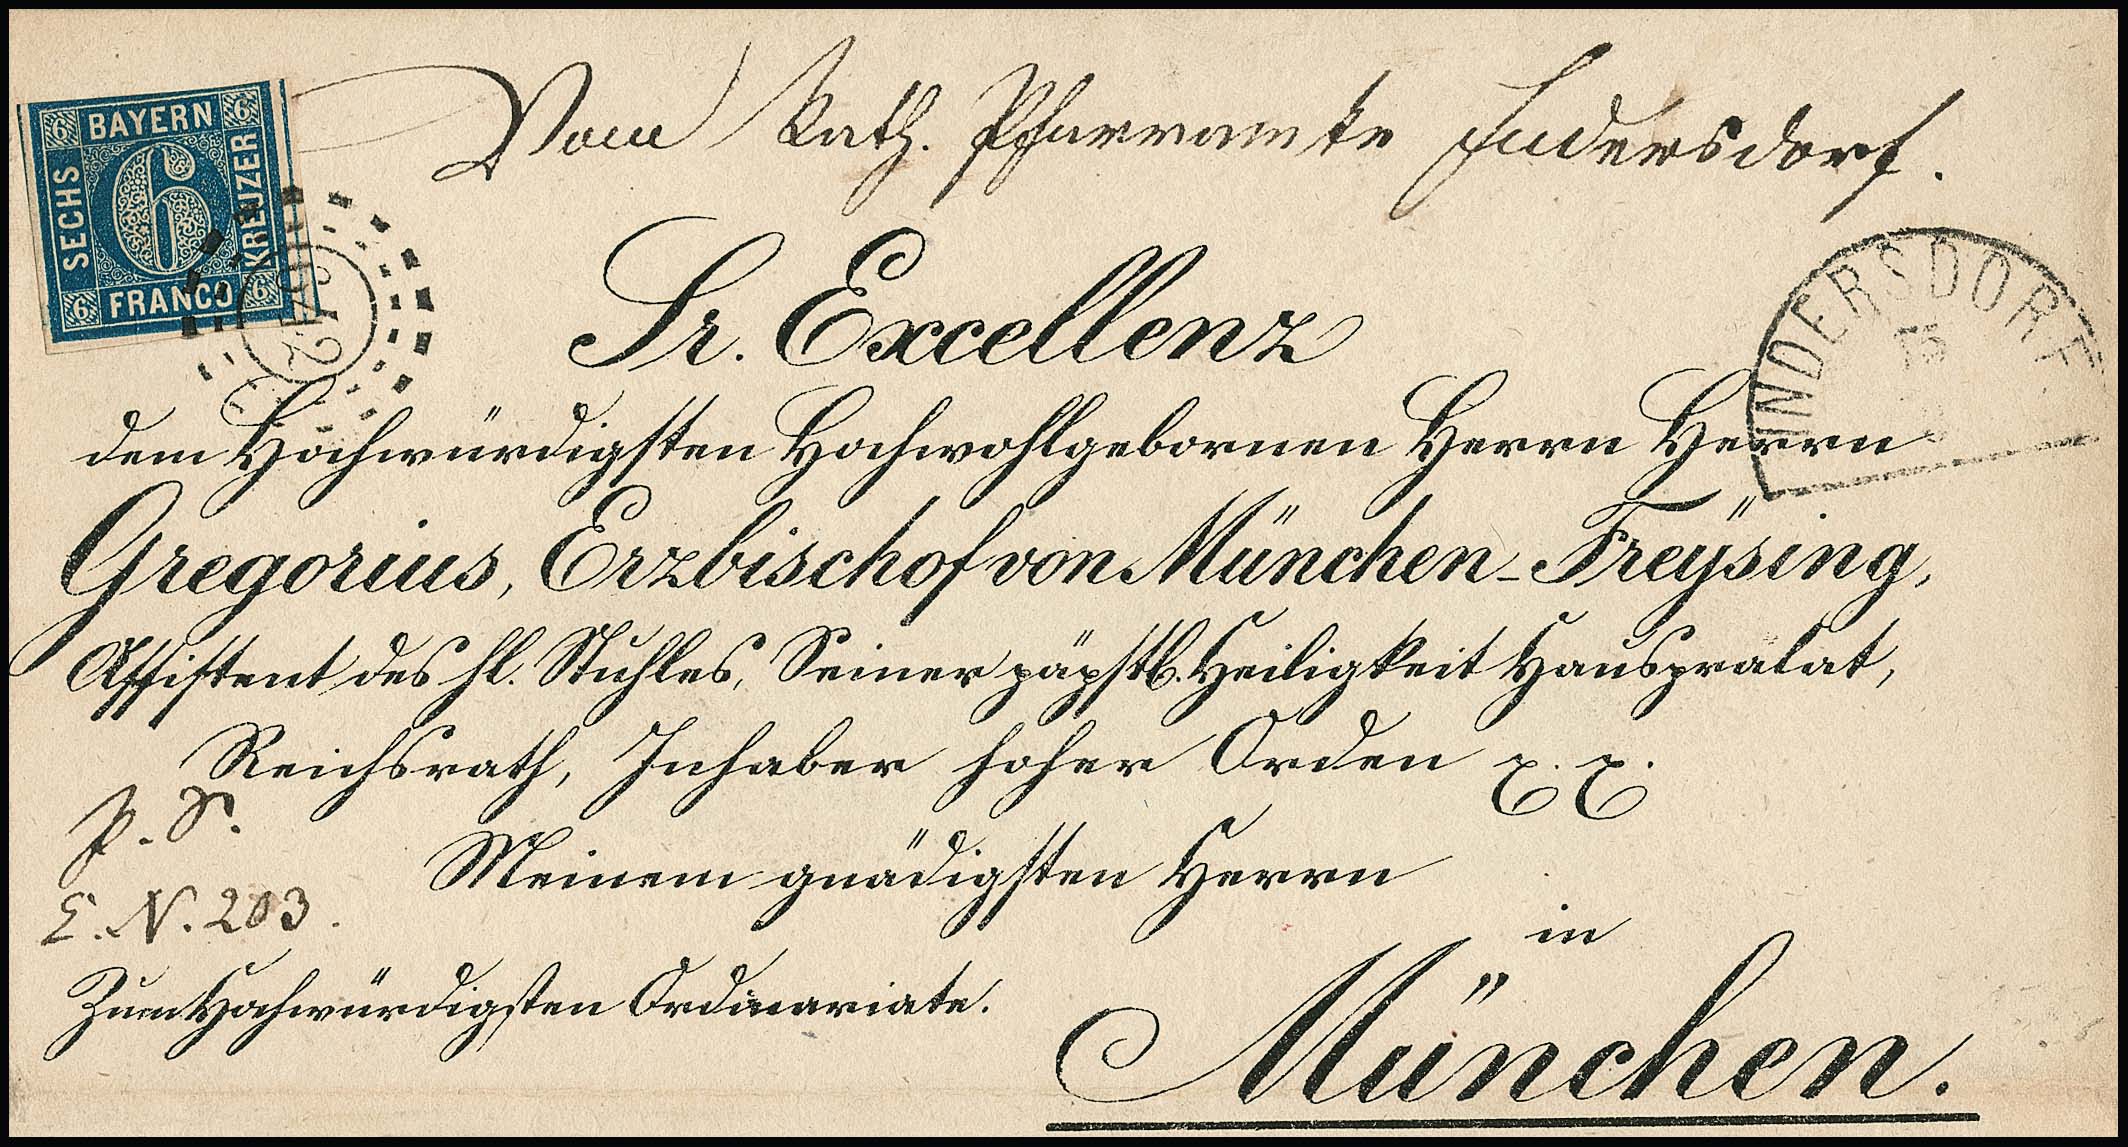 Vom Kath. Pfarramte Indersdorf.
6 BAYERN 6
SECHS
6
KREUZER
6 FRANCO 6
INDERSDORF
Sr. Excellenz
dem Hochwürdigsten Hochwohlgebornen Herrn Herrn
Gregorius, Erzbischof von München-Freÿsing,
Assistent des hl. Stuhles, Seiner päpstl. Heiligkeit Hausprälat,
Reichsrath, Inhaber hoher Orden
P. S.
Meinem gnädigsten Herrn
E. N. 203.
in
Zum Hochwürdigsten Ordinariate.
München.